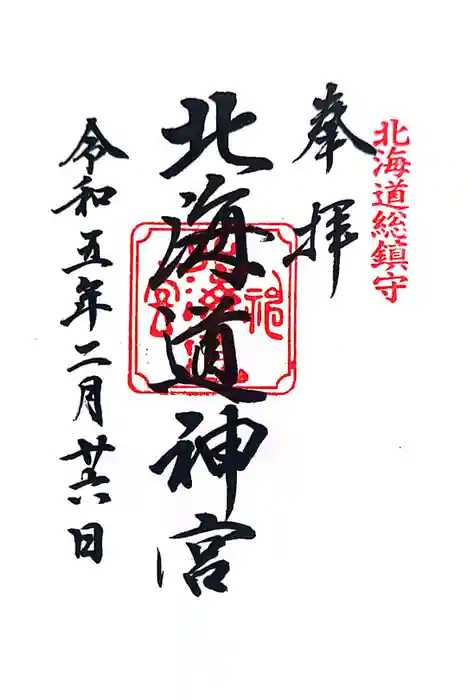 北海道総鎮守
奉拝
北海道神宮
令和五年二月廿六日